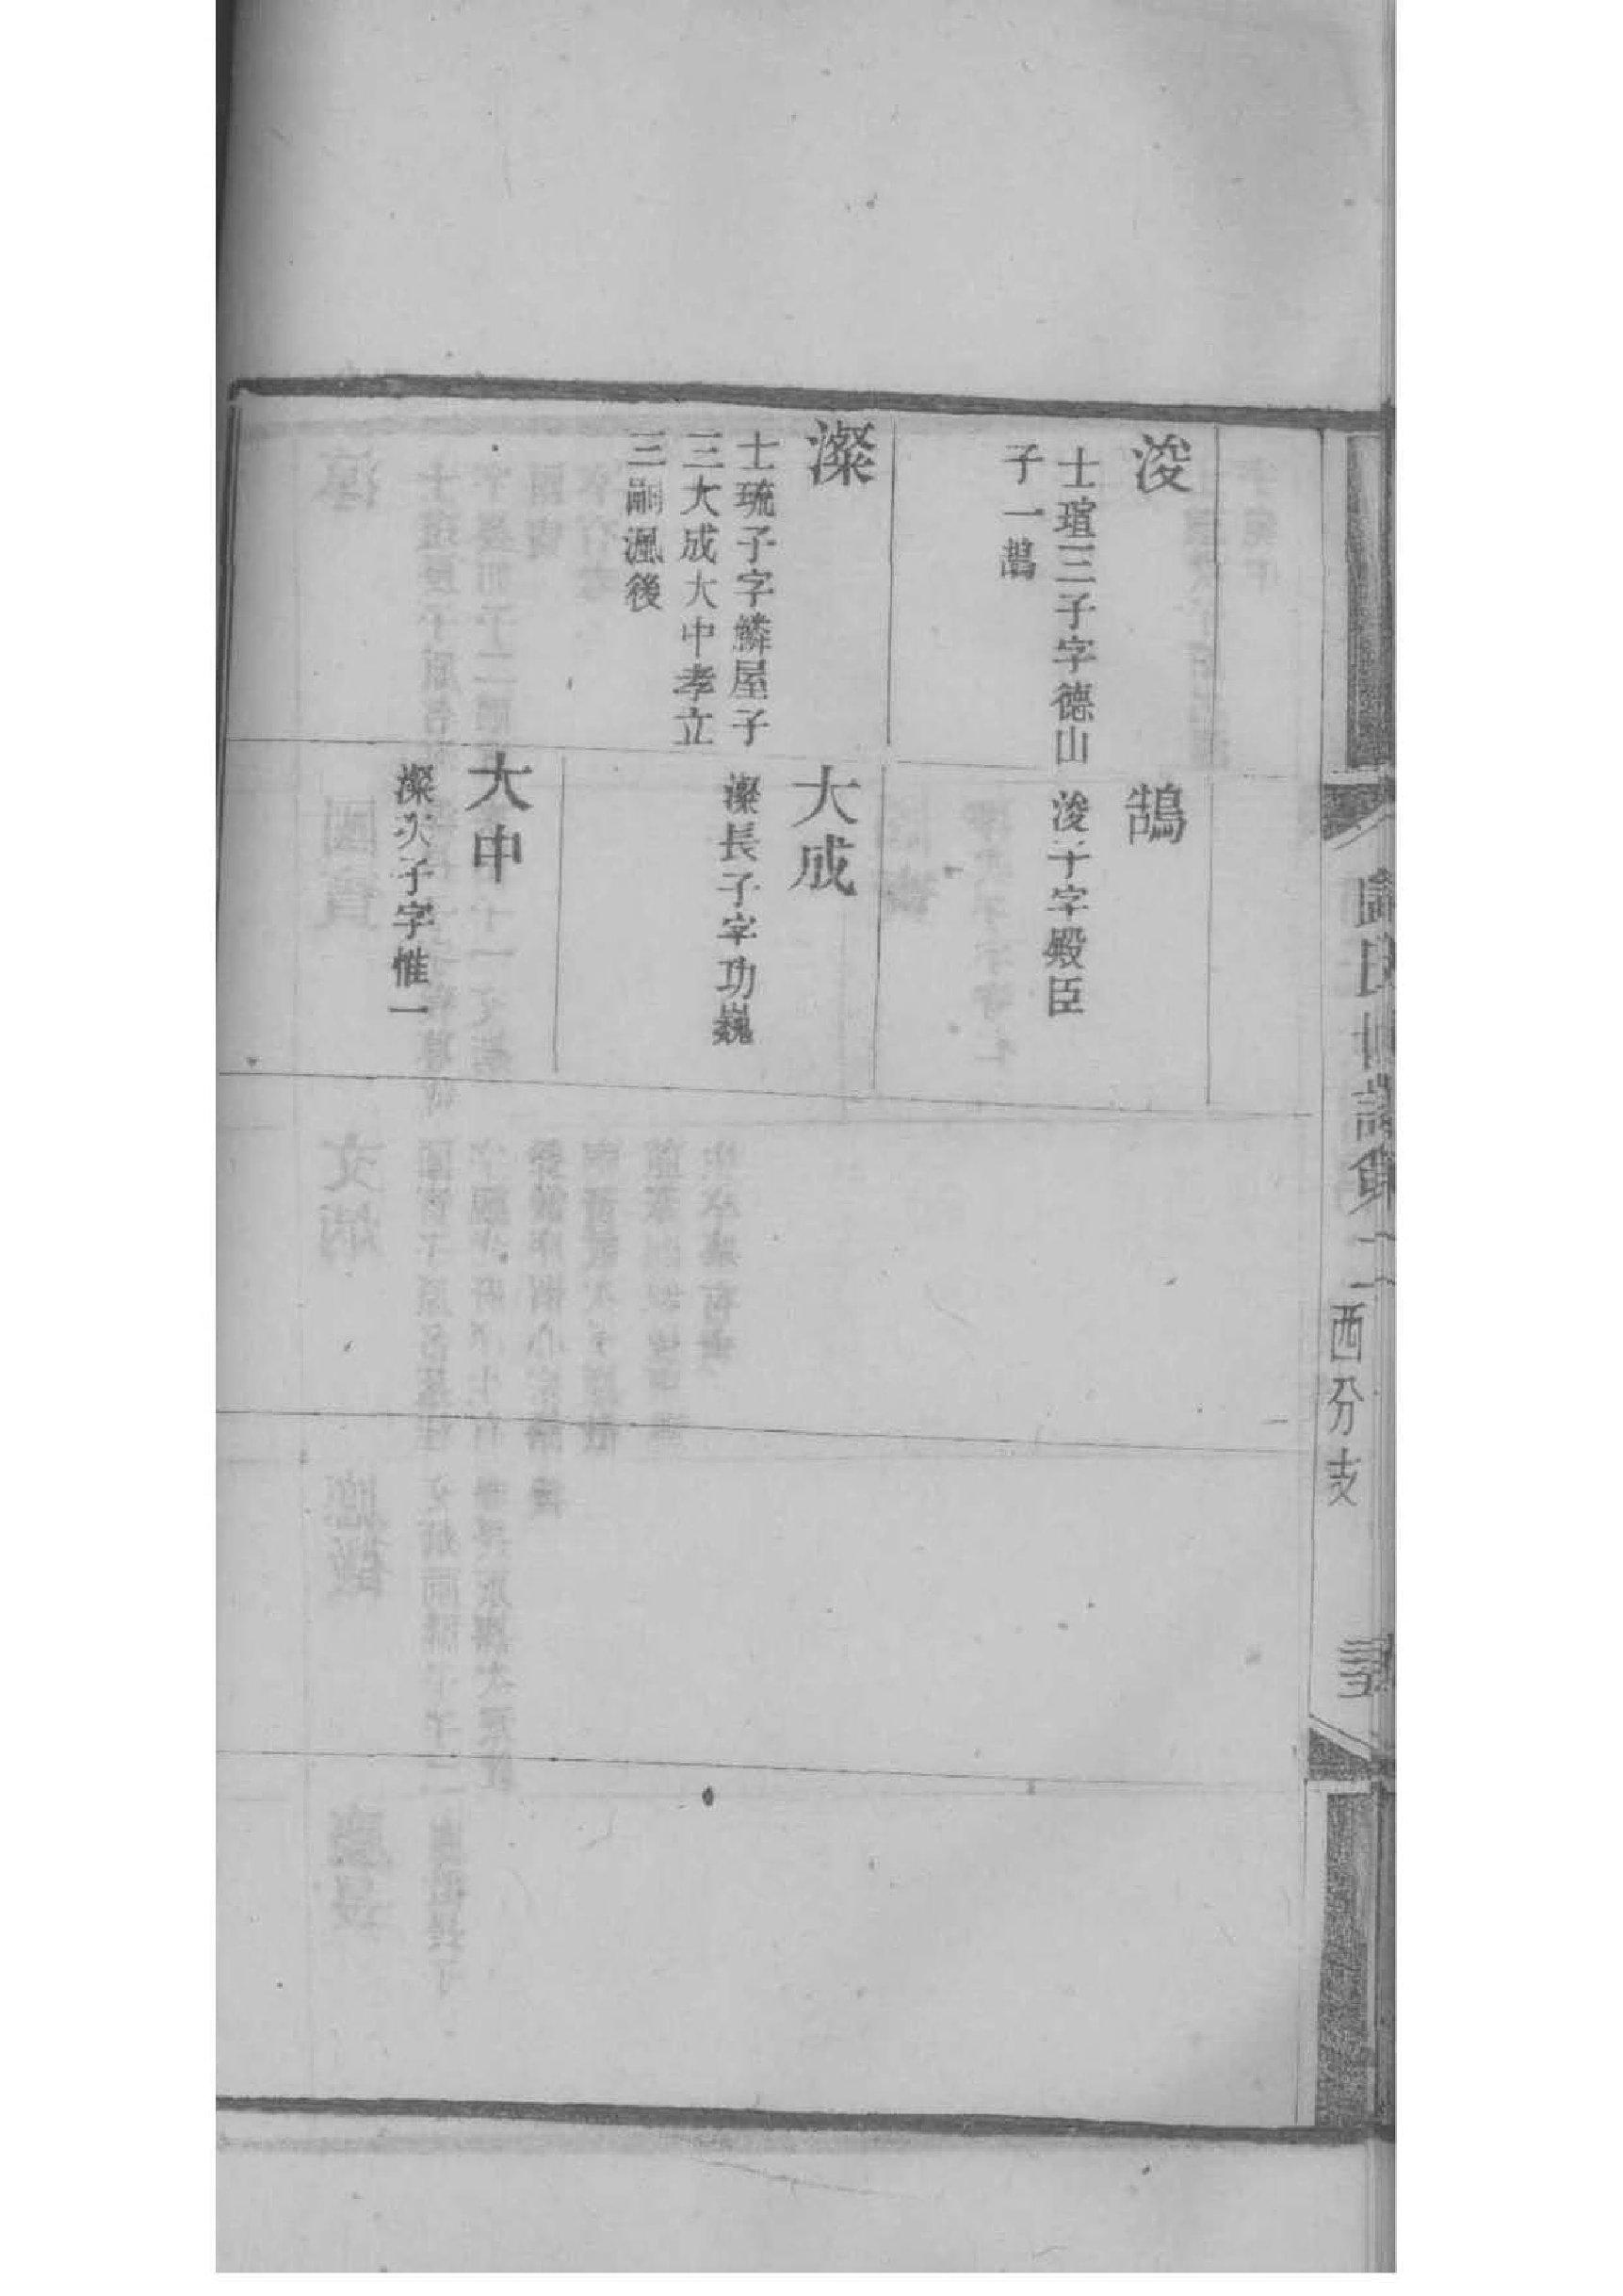 浚
士瑄三子字德山
子一鵠
澯
士琉子字鱗屋子
三大成大中孝立
三嗣渢後
鵠
浚子字殿臣
大成
澯長子字功巍
大中
澯次子字惟一
西分支